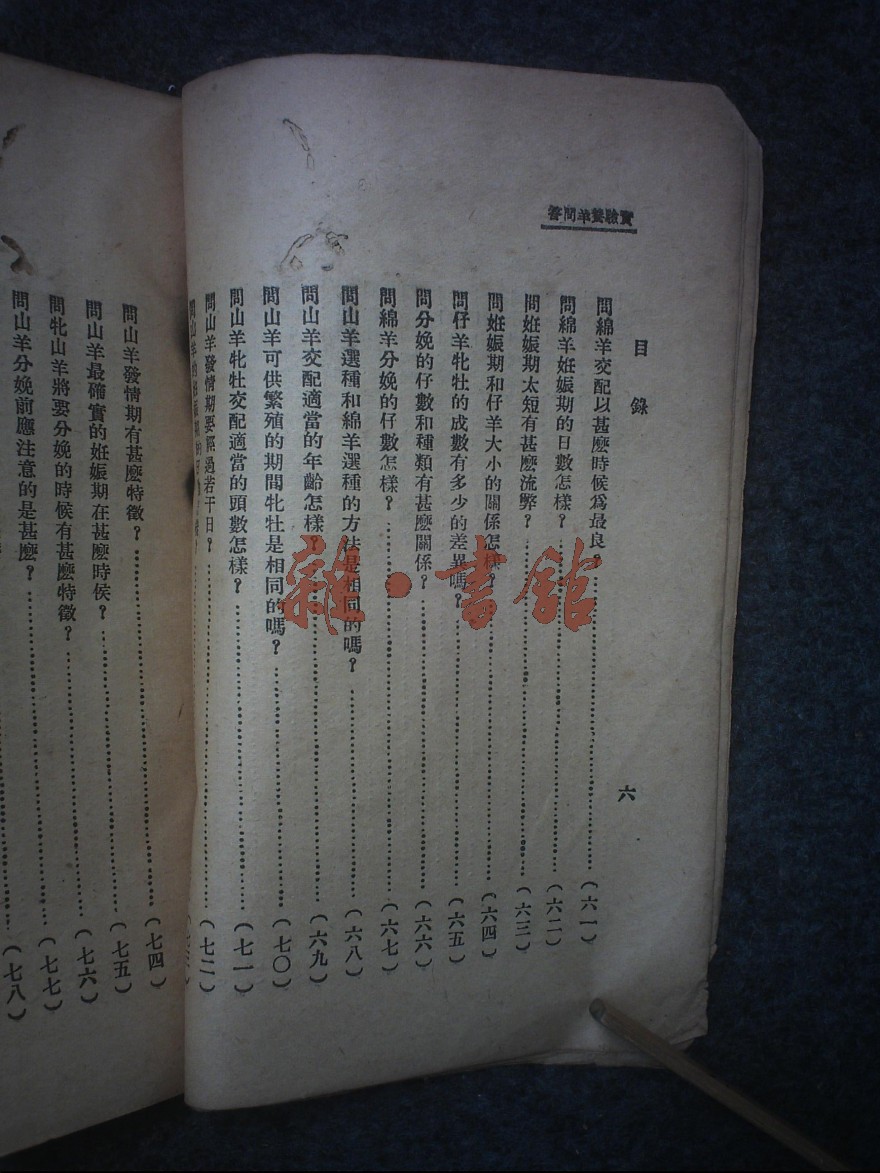 實驗養羊問答
目錄
六
問綿羊交配以甚麼時候爲最良？……(六一)
問綿羊妊娠期的日數怎樣？……(六二)
問妊娠期太短有甚麼流弊？……(六三)
問妊娠期和仔羊大小的關係怎樣？……(六四)
問仔羊牝牡的成數有多少的差異嗎？……(六五)
問分娩的仔數和種類有甚麼關係？……(六六)
問綿羊分娩的仔數怎樣？……(六七)
問山羊選種和綿羊選種的方法是相同的嗎？……(六八)
問山羊交配適當的年齡怎樣？……(六九)
問山羊可供繁殖的期間牝牡是相同的嗎？……(七〇)
問山羊牝牡交配適當的頭數怎樣？……(七一)
問山羊發情期要經過若干日？……(七二)
問山羊發情期有甚麼特徵？……(七四)
問山羊最確實的妊娠期在甚麼時侯？……(七五)
問牝山羊將要分娩的時候有甚麼特徵？……(七六)
問山羊分娩前應注意的是甚麼？……(七七)
(七八)
雜·書館